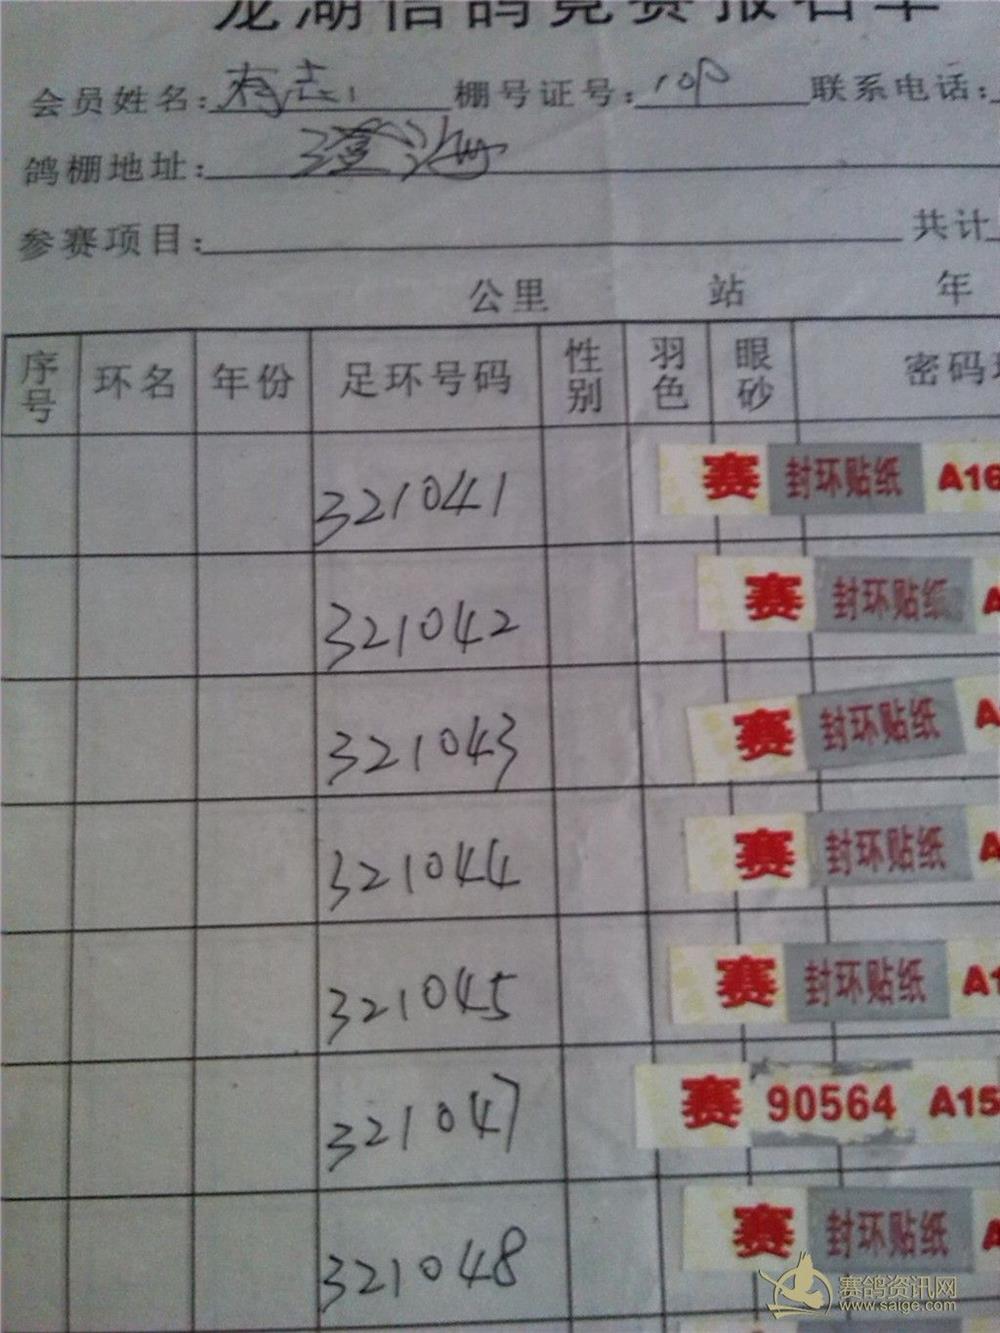 龙湖信鸽竞赛报名单
会员姓名: 棚号证号: 联系电话:
鸽棚地址: 澄海
参赛项目: 共计
公里 站 年
序号 环名 年份 足环号码 性别 羽色 眼砂 密码
321041 赛 封环贴纸 A16
321042 赛 封环贴纸 A
321043 赛 封环贴纸 A
321044 赛 封环贴纸 A
321045 赛 封环贴纸 A1
321047 赛 90564 A15
321048 赛 封环贴纸 A
赛鸽资讯网
www.saige.com